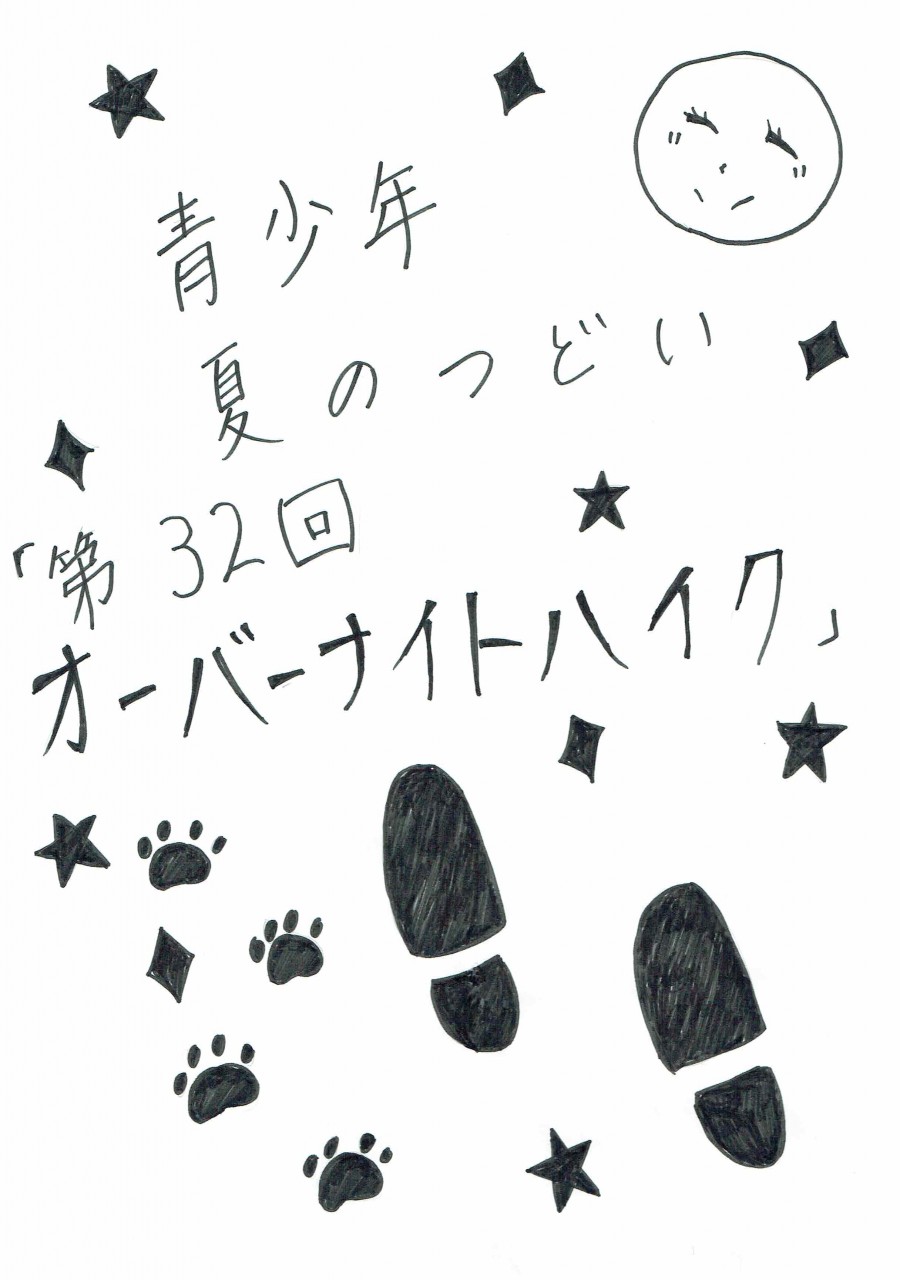 青少年
夏のつどい
「第32回
オーバーナイトハイク」